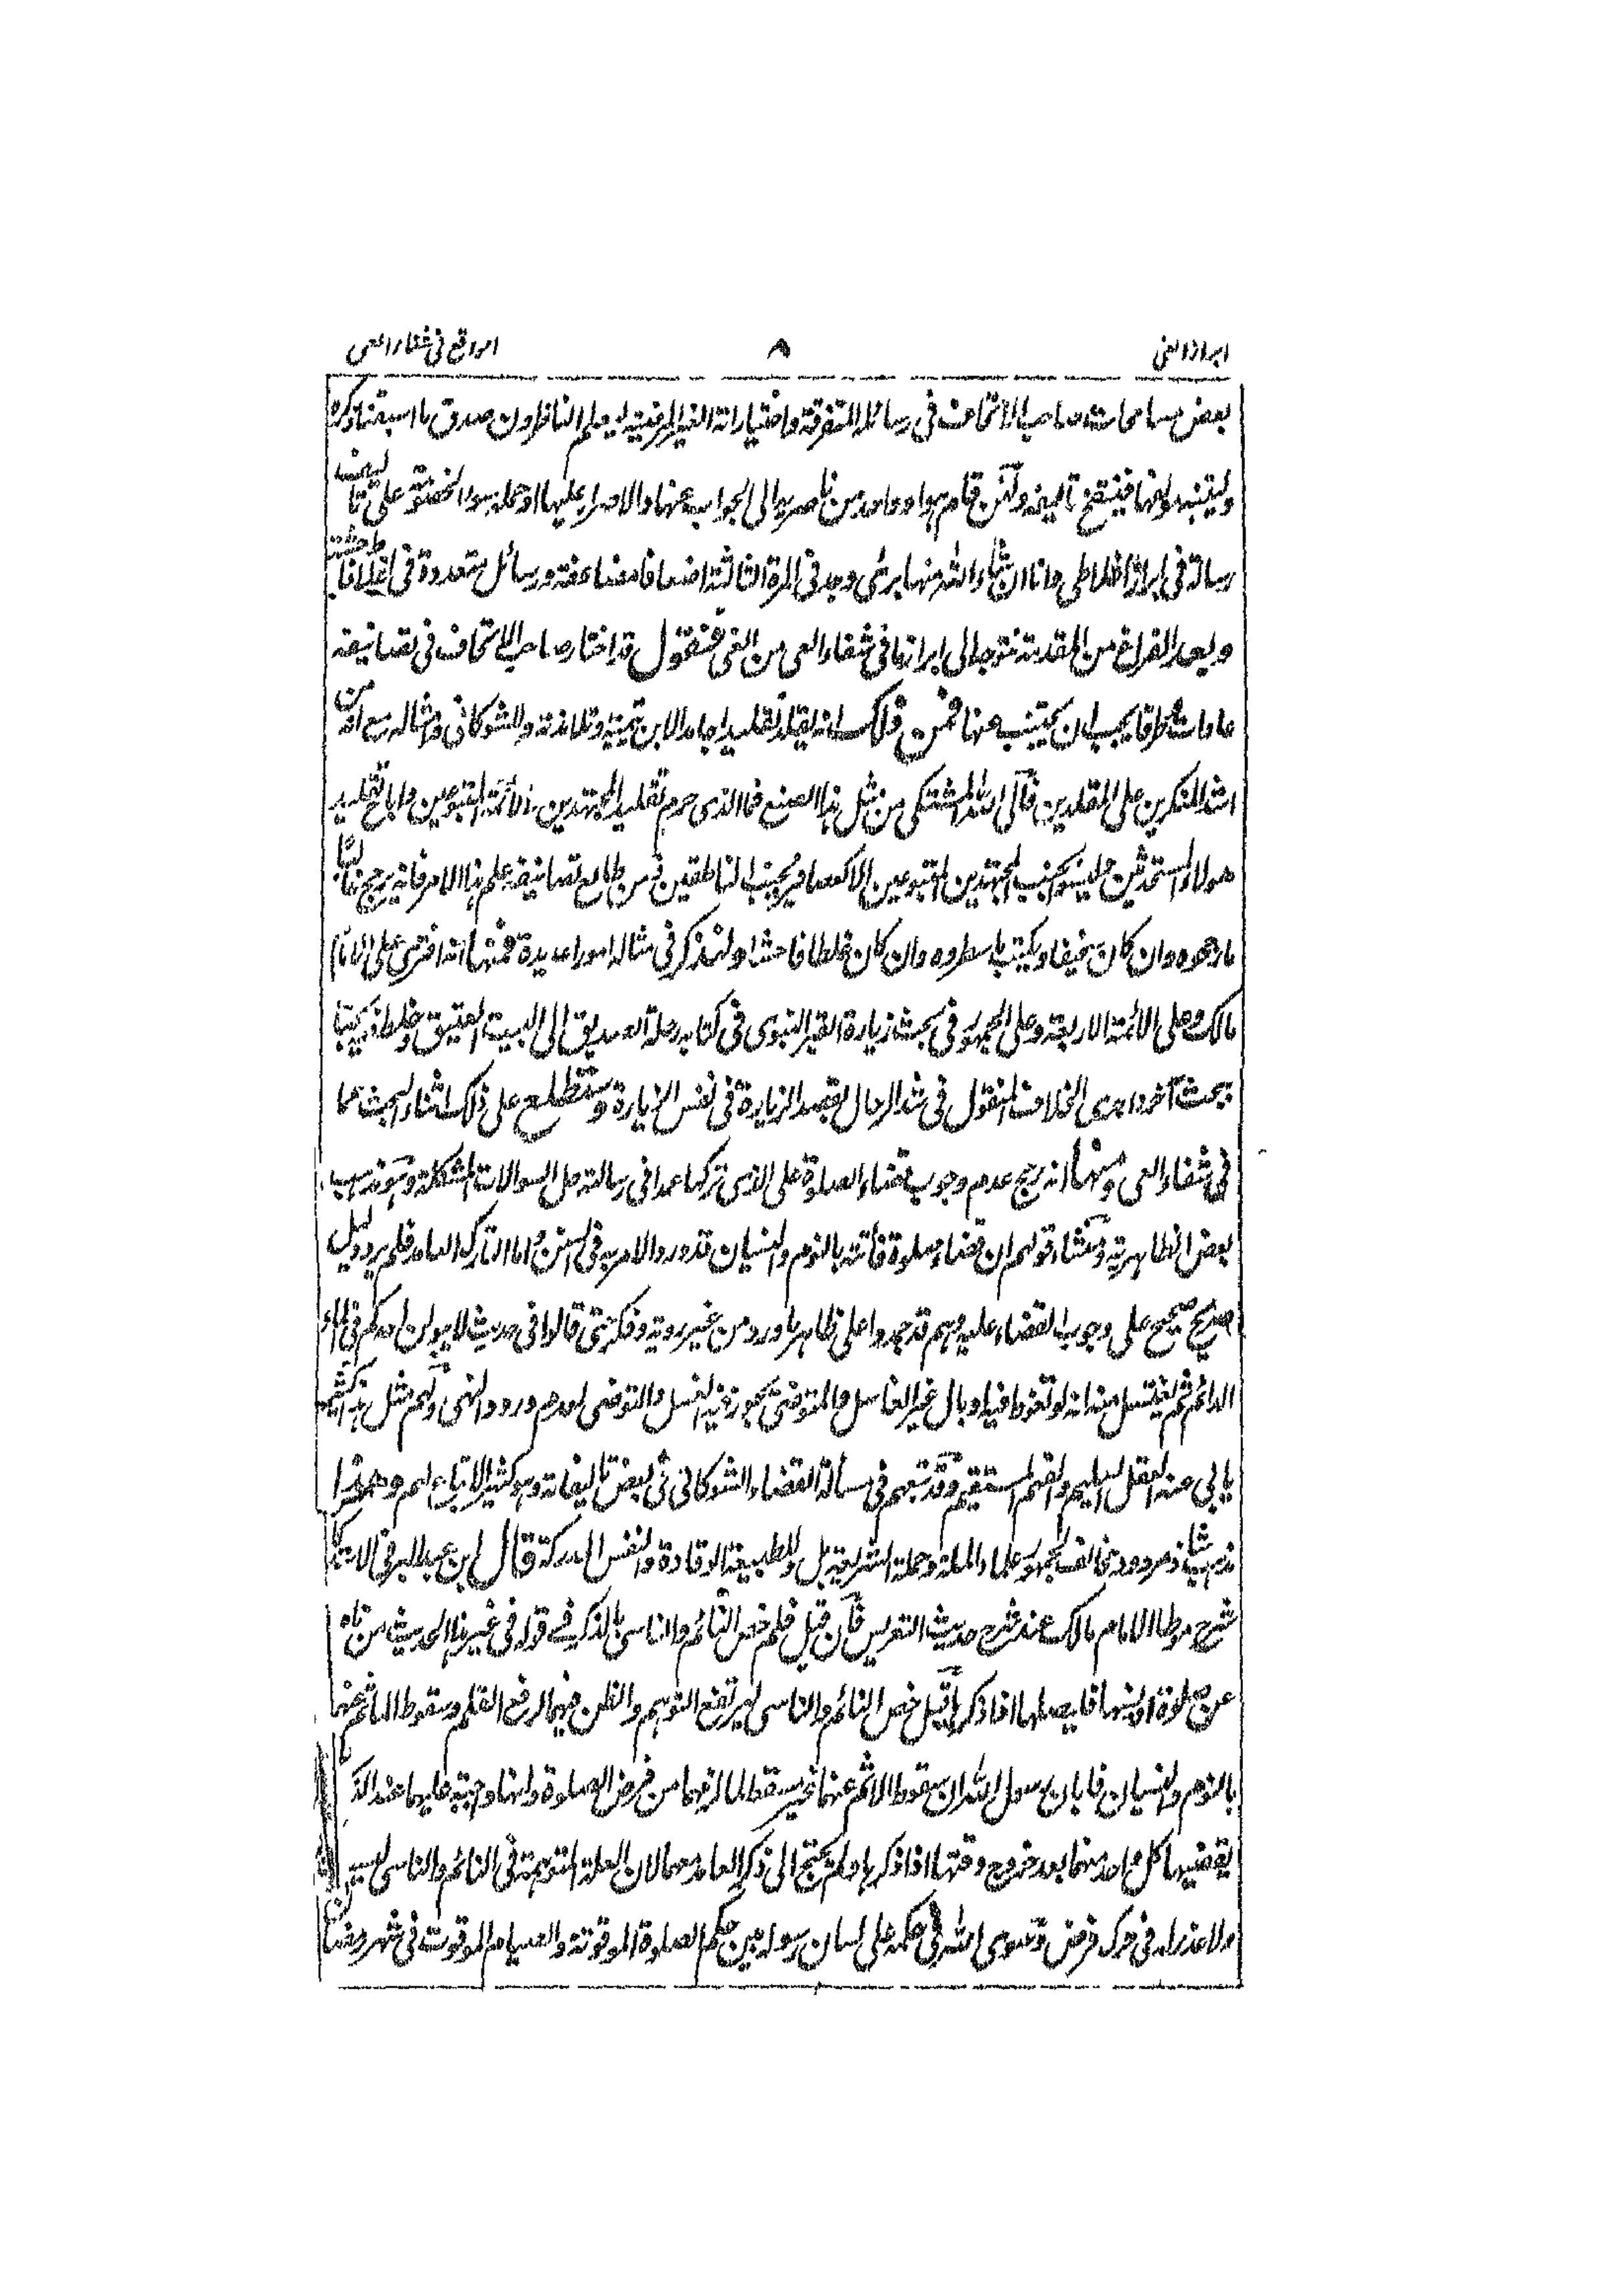 ابراز الغى
٨
الواقع فى شفاء العى
بعض مسامحات صاحب الاتحاف فى رسائله المتفرقة واختياراته الغير المرضية ليعلم الناظرون صدق ما اسبقنا ذكره
وليتنبه مولفها فينقح تاليفه ولئن قام هو او عامد من ناصريه الى الجواب عنها والاصرار عليها او حمله سوء الخصومة على تاليف
رسالة فى ابراز اغلاطى وانا ان شاء الله منها برئ وجد فى المرة الثالثة اضعافا مضاعفة ورسائل متعددة فى اغلاطه
وبعد الفراغ من المقدمة نتوجه الى ابراز ما فى شفاء العى من الغى فنقول قد اختار صاحب الاتحاف فى تصانيفه
عادات وطرقا يجب ان يجتنب عنها فمن ذلك انه يقلد تقليدا جامدا لابن تيمية وتلامذته والشوكانى وامثاله مع انه من
اشد المنكرين على المقلدين فالى الله المشتكى من مثل هذا الصنع فما الذى حرم تقليد المجتهدين والائمة المتبوعين واباح تقليد
هولاء المستحدثين وليسوا بجنب المجتهدين المتبوعين الا كعصافير بجنب الناطقين ومن طالع تصانيفه علم هذا الامر فانه يرجح غالبا
ما رجحوه وان كان سخيفا ويكتب ما سطروه وان كان غلطا فاحشا ولنذكر فى مثاله امورا عديدة فمنها انه افترى على الامام
مالك وعلى الائمة الاربعة وعلى الجمهور فى بحث زيارة القبر النبوى فى كتابه رحلة الصديق الى البيت العتيق وخلط فيه بحثا
ببحث آخر واجرى الخلاف المنقول فى شد الرحال لقصد الزيارة فى نفس الزيارة وستطلع على ذلك اثناء البحث عما
فى شفاء العى ومنها انه رجح عدم وجوب قضاء الصلوة على الذى تركها عمدا فى رسالته حل السوالات المشكلة وهو مذهب
بعض الظاهرية ومنشاء قولهم ان قضاء صلوة فاتته بالنوم والنسيان قد ورد الامر به فى السنن واما التارك العامد فلم يرد دليل
صريح صحيح على وجوب القضاء عليه وهم قد جمدوا على ظاهر ما ورد من غير روية وفكر حتى قالوا فى حديث لا يبولن احدكم فى الماء
الدائم ثم يغتسل منه انه لو تغوط فيه او بال غير الغاسل والمتوضى يجوز فيه الغسل والتوضى لعدم ورود النهى ولهم مثل هذا كثير
يابى عنه العقل السليم والفهم المستقيم وقد تبعهم فى مسألة القضاء الشوكانى فى بعض تاليفاته وهو كثير الاتباع لهم وهذا
مذهب شاذ مردود مخالف لجمهور علماء الملة وحملة الشريعة بل وللطبيعة الوقادة والنفس المدركة قال ابن عبد البر فى الاستذكار
شرح موطا الامام مالك عند شرح حديث التعريس فان قيل فلم خص النائم والناسى بالذكر فى قوله فى غير هذا الحديث من نام
عن صلوة او نسيها فليصلها اذا ذكرها قيل خص النائم والناسى ليرتفع التوهم والظن فيهما لرفع القلم وسقوط الماثم عنهما
بالنوم والنسيان فابان رسول الله ان سقوط الاثم عنهما غير مسقط لما لزمهما من فرض الصلوة وانها واجبة عليهما عند الذكر
يقضيها كل واحد منهما بعد خروج وقتها اذا ذكرها ولم يحتج الى ذكر العامد معهما لان العلة المتوهمة فى النائم والناسى ليست
ولا عذر له فى ترك فرض وسوى الله فى حكمه على لسان رسوله بين حكم الصلوة الموقوتة والصيام الموقوت فى شهر رمضان